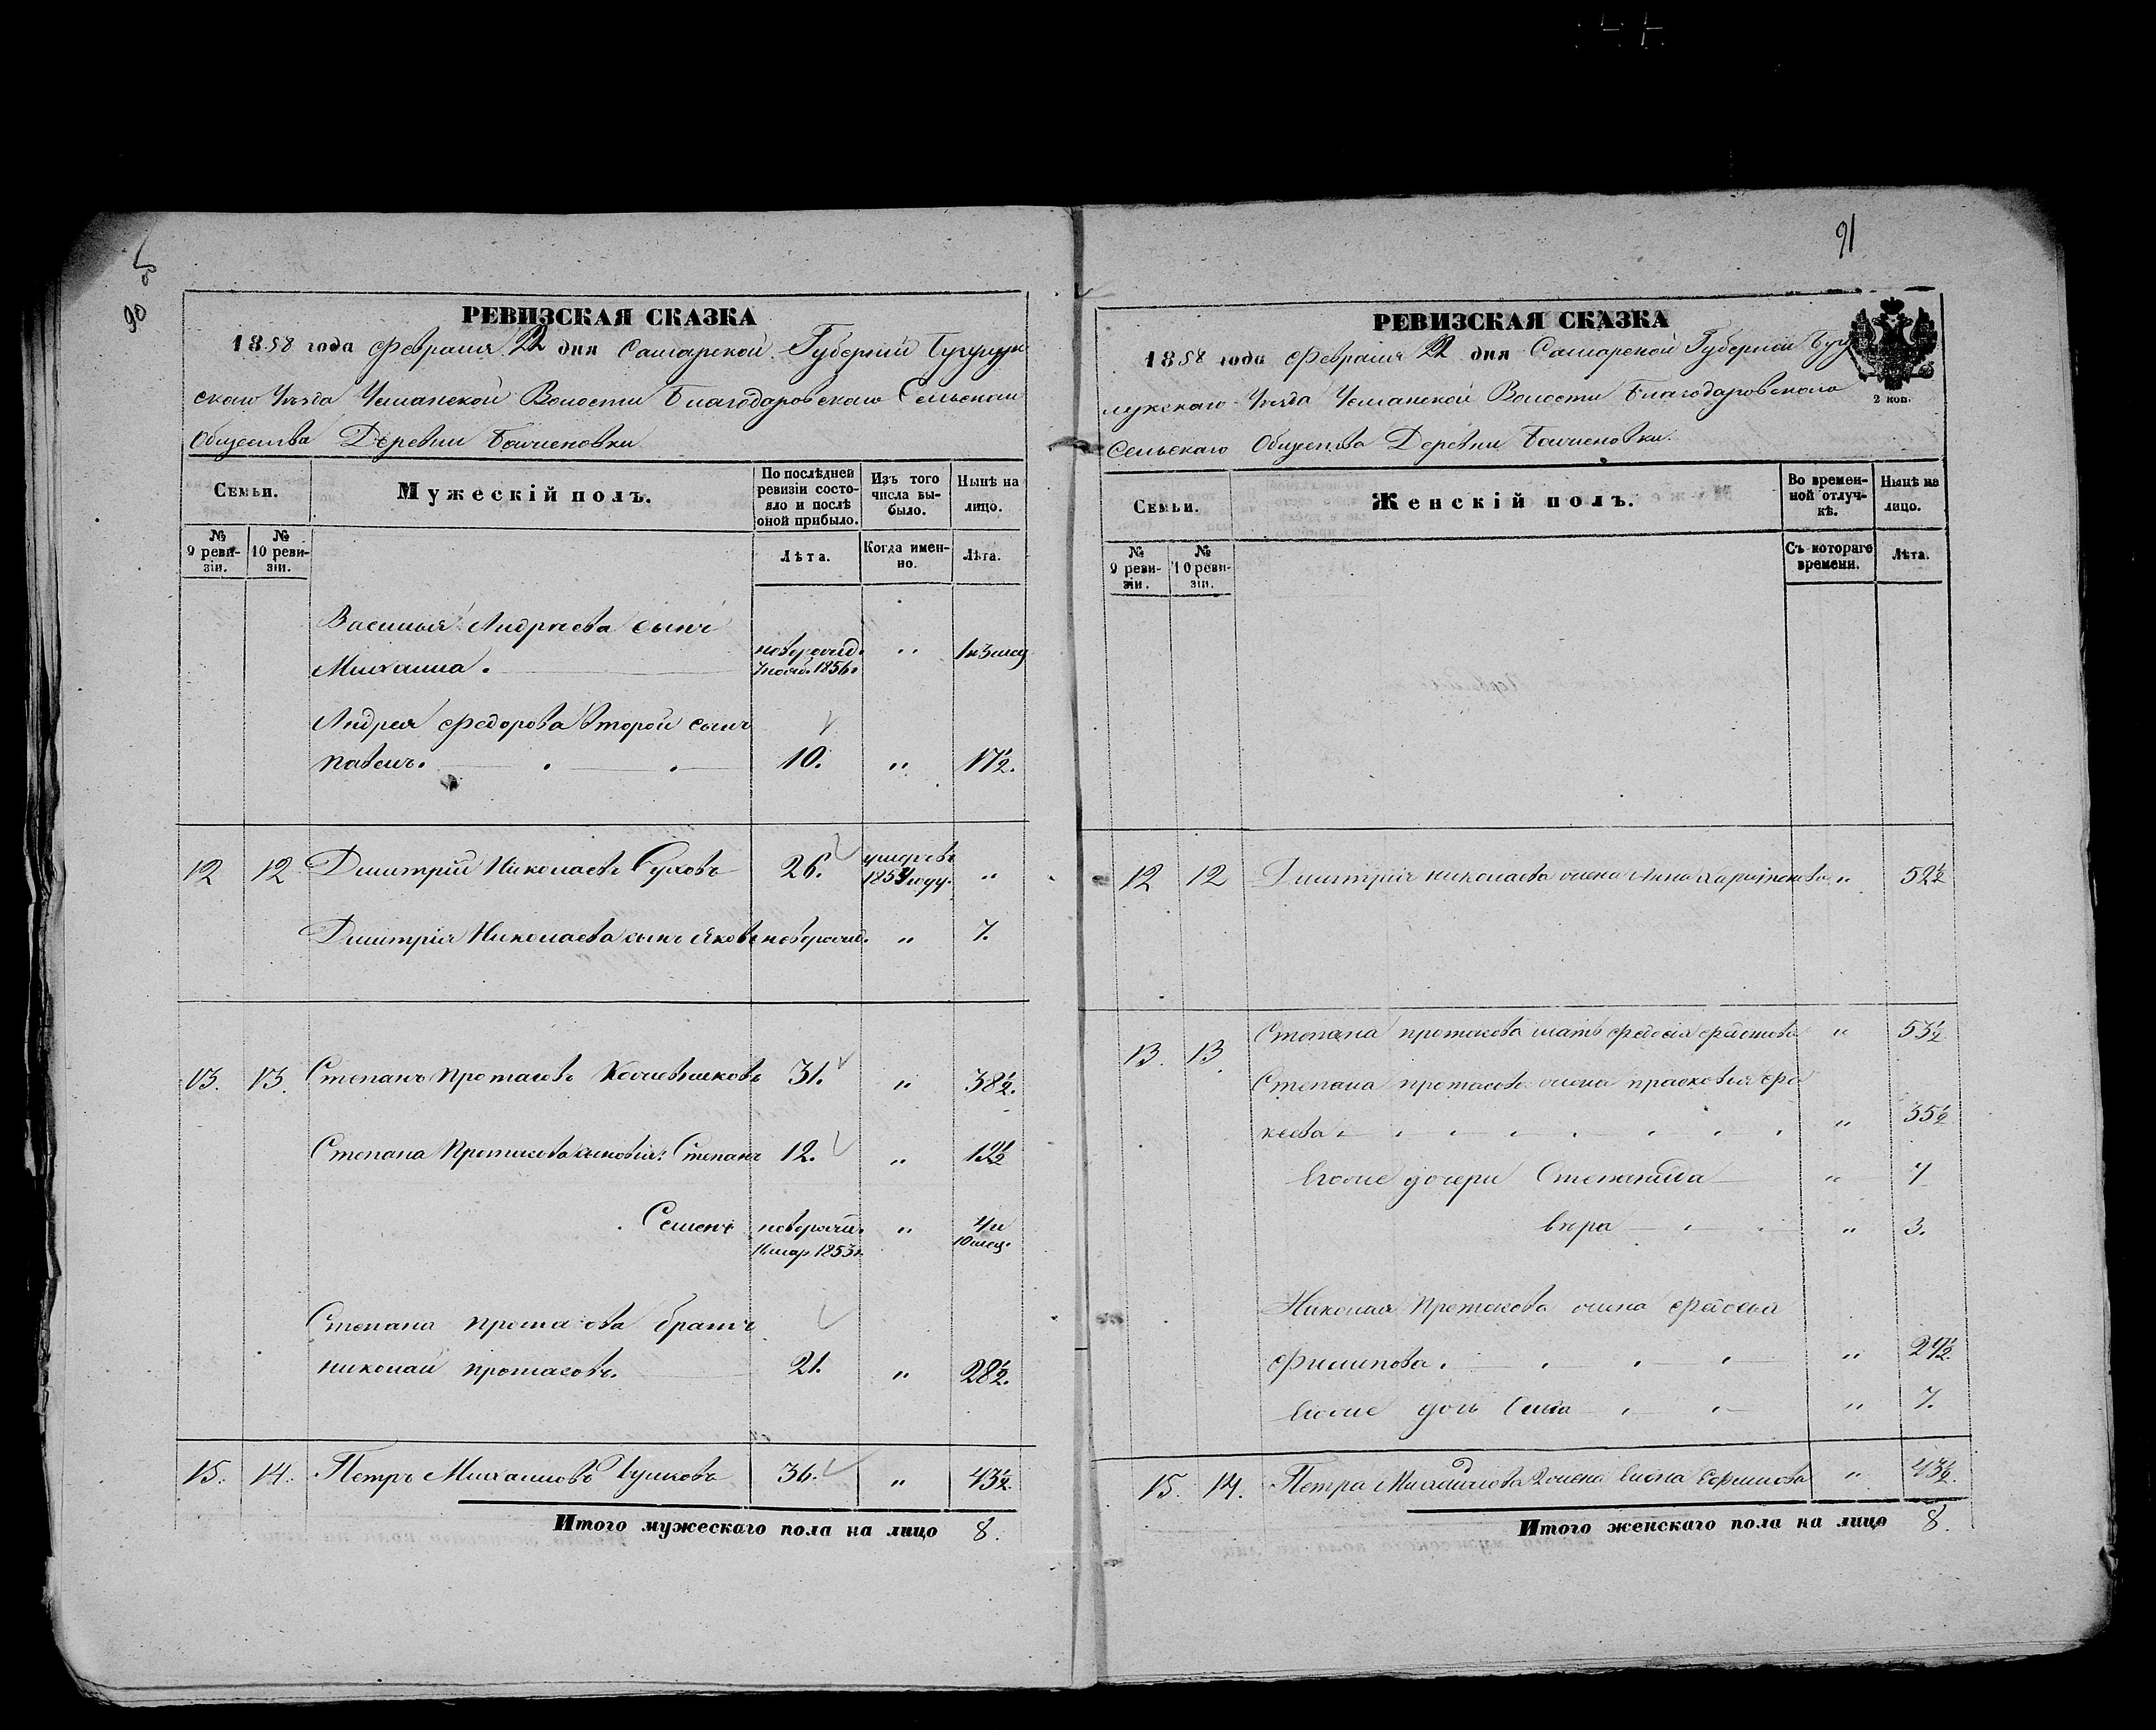 90
РЕВИЗСКАЯ СКАЗКА
1858 года Февраля 22 дня Самарской Губернии Бугурусл
скаго Уѣзда Волости Благодаровскаго Сельскаго
Общества Деревни
Семьи.
Мужескій полъ.
По послѣдней ревизіи состояло и послѣ оной прибыло.
Изъ того числа выбыло.
Нынѣ на лицо.
№ 9 ревизіи.
№ 10 ревизіи.
Лѣта.
Когда именно.
Лѣта.
Василья Андреева сынъ
Михаила. новорожд. 1856. " 1 и 3 мец
Андрея Федорова второй сынъ
Павелъ. 10. " 17½.
12 12 Дмитрій Николаевъ 26. умеръ въ году. "
Дмитрія Николаева сынъ Яковъ новорожд. " 7.
13. 13. Степанъ Протасовъ 31. " 38½.
Степана Протасова сыновья: Степанъ 12. "
Семенъ новорожд. " 4 и
16 мар 1853 г. 10 мец.
Степана Протасова братъ
Николай Протасовъ. 21. " 28½.
15. 14. Петръ Михаиловъ 36. " 43½.
Итого мужескаго пола на лицо 8.
91
РЕВИЗСКАЯ СКАЗКА
2 коп.
1858 года Февраля 22 дня Самарской Губерніи Бугу
Уѣзда Волости Благодаровскаго
Сельскаго Общества Деревни
Семьи.
Женскій полъ.
Во временной отлучкѣ.
Нынѣ на лицо.
№ 9 ревизіи.
№ 10 ревизіи.
Съ котораго времени.
Лѣта.
12 12 Дмитрія Николаева жена Анна " 52½
13. 13. Степана Протасова мать Федосія " 53½
Степана Протасова жена Прасковья
" 35½
Ихъ же дочери Степанида " 7
Вѣра " 3.
Николая Протасова жена Федосья
Филипова. " 27½.
Ихъ же дочь " 7.
15. 14. Петра Михаилова 2 жена Елена Ефимова " 43½.
Итого женскаго пола на лицо 8.